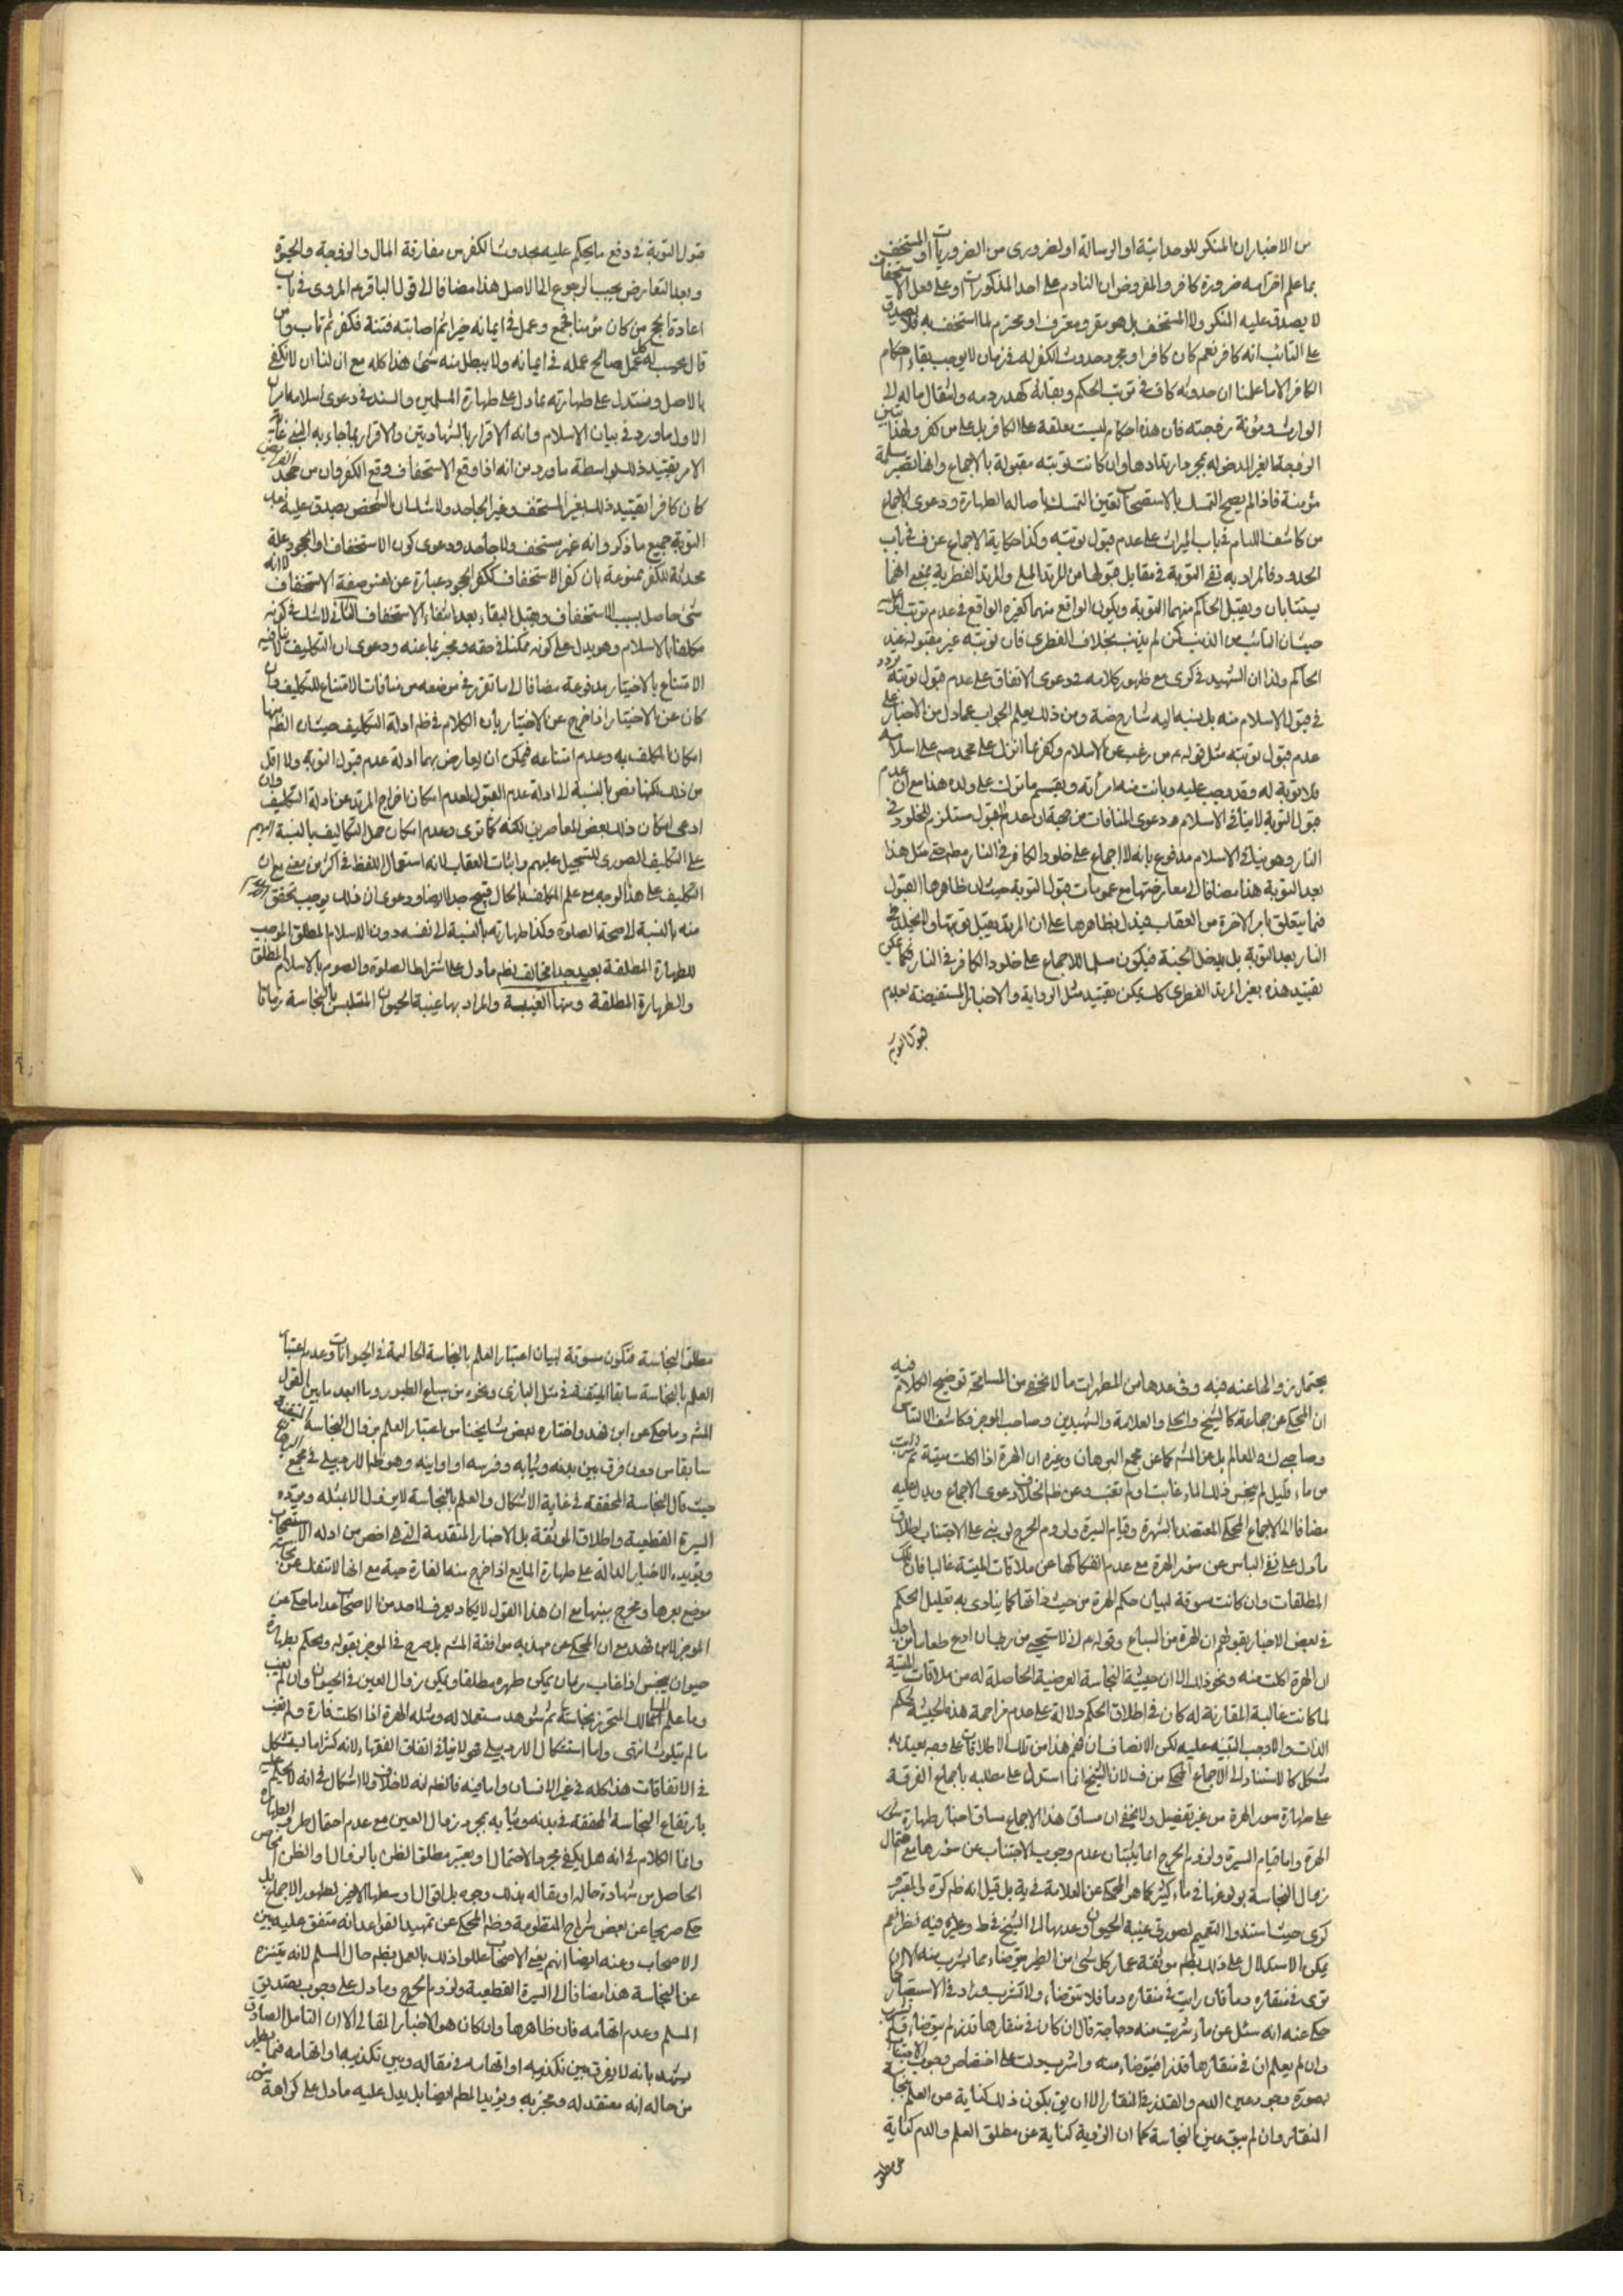 من الاخبار ان المنكر للوحدانية او الرسالة او لضروري من الضروريات او المستخف
بما علم احترامه ضرورة كافر والمفروض ان النادم على احد المذكورات او على فعل الاستخفاف
لا يصدق عليه المنكر ولا المستخف بل هو مقر ومعترف او محترم لما استخف به فلا يصدق
على التائب انه كافر نعم كان كافرا ومجرد حدوث الكفر له في زمان لا يوجب بقاء احكام
الكافر الا ما علمنا ان حدوثه كاف في ترتب الحكم وبقائه كهدر دمه وانتقال ماله الى
الوارث وبينونة زوجته فان هذه احكام ليست معلقة على الكافر بل على من كفر ولهذا تبين
الزوجة الغير المدخولة بمجرد ارتدادها وان كانت توبته مقبولة بالاجماع وانها تصير مسلمة
مؤمنة فاذا لم يصح التمسك بالاستصحاب تعين التمسك باصالة الطهارة ودعوى الاجماع
من كاشف اللثام في باب الميراث على عدم قبول توبته وكذا حكاية الاجماع عن ف في باب
الحدود فالمراد به نفي التوبة في مقابل قبولها من المرتد الملي والمرتد الفطرية بمعنى انهما
يستتابان ويقبل الحاكم منهما التوبة ويكون الواقع منهما كغيره الواقع في عدم ترتب
حيث ان التائب من الذنب كمن لم يذنب بخلاف الفطري فان توبته غير مقبولة عند
الحاكم ولذا ان الشهيد في كرى مع ظهور كلامه في دعوى الاتفاق على عدم قبول توبته تردد
في قبول الاسلام منه بل نسبه اليه شارح ضة ومن ذلك يعلم الجواب عما دل من الاخبار على
عدم قبول توبته مثل قوله ع من رغب عن الاسلام وكفر بما انزل على محمد ص بعد اسلامه
فلا توبة له وقد وجب عليه وبانت منه امرأته ويقسم ما ترك على ولده هذا مع ان عدم
قبول التوبة لا ينافي الاسلام ودعوى المنافات من جهة ان عدم القبول مستلزم للخلود في
النار وهو ينافي الاسلام مدفوع بانه لا اجماع على خلود الكافر في النار مطم حتى مثل هذا
بعد التوبة هذا مضافا الى معارضتها مع عمومات قبول التوبة حيث ان ظاهرها القبول
فيما يتعلق بامر الاخرة من العقاب فيدل بظاهرها على ان المرتد يقبل توبته ولا يخلد في
النار بعد التوبة بل يدخل الجنة فيكون مسلما للاجماع على خلود الكافر في النار فكما يمكن
تقييد هذه بغير المرتد الفطري كك يمكن تقييد مثل الرواية والاخبار المستفيضة بعدم
قبول التوبة
قبول التوبة في دفع ما يحكم عليه بحدوث الكفر من مفارقة المال والزوجة والحيوة
وبعد التعارض يجب الرجوع الى الاصل هذا مضافا الى قول الباقر ع المروي في باب
اعادة الحج من كان مؤمنا فحج وعمل في ايمانه خيرا ثم اصابته فتنة فكفر ثم تاب وامن
قال يحسب له كل عمل صالح عمله في ايمانه ولا يبطل منه شئ هذا كله مع ان لنا ان لا نكتفي
بالاصل ونستدل على طهارته بما دل على طهارة المسلمين والسند في دعوى اسلامه امران
الاول ما ورد في بيان الاسلام وانه الاقرار بالشهادتين والاقرار بما جاء به النبي غاية
الامر تقييد ذلك بواسطة ما ورد من انه اذا وقع الاستخفاف وقع الكفر وان من جحد الفرايض
كان كافرا تقييد ذلك بغير المستخف وغير الجاحد ولا شك ان الشخص يصدق عليه بعد
التوبة جميع ما ذكر وانه غير مستخف ولا جاحد ودعوى كون الاستخفاف او الجحود علة
محدثة للكفر ممنوعة بان كفر الاستخفاف ككفر الجحود عبارة عن نفس صفة الاستخفاف لا انه
شئ حاصل بسبب الاستخفاف ويقبل البقاء بعد انتفاء الاستخفاف الثاني لا شك في كونه
مكلفا بالاسلام وهو يدل على كونه ممكنا في حقه ومجزيا عنه ودعوى ان التكليف لا ينافيه
الامتناع بالاختيار مدفوعة مضافا الى ما تقرر في موضعه من منافات الامتناع للتكليف وان
كان عن الاختيار اذا خرج عن الاختيار بان الكلام في ظم ادلة التكليف حيث ان الظم منها
امكان المكلف به وعدم امتناعه فيمكن ان يعارض بهما ادلة عدم قبول التوبة ولا اقل
من ذلك لكنها نص بالنسبة الى ادلة عدم القبول لعدم امكان اخراج المرتد عن ادلة التكليف وان
ادعى امكان ذلك بعض المعاصرين لكنه كما ترى وعدم امكان حمل التكاليف بالنسبة اليهم
على التكليف الصوري للتسجيل عليهم واثبات العقاب لانه استعمال اللفظ في اكثر من معنى مع ان
التكليف على هذا الوجه مع علم المكلف بالحال قبيح جدا ايضا ودعوى ان ذلك يوجب تحقق
منه بالنسبة الى صحة الصلوة وكذا طهارته بالنسبة الى نفسه دون الاسلام المطلق الموجب
للطهارة المطلقة بعيد جدا مخالف لظم ما دل على اشتراط الصلوة والصوم بالاسلام المطلق
والطهارة المطلقة ومنها الغيبة والمراد بها غيبة الحيوان المتلبس بالنجاسة زمانا
يحتمل زوالها عنه فيه وفي عدها من المطهرات ما لا يخفى من المسامحة توضيح الكلام فيه
ان المحكي عن جماعة كالشيخ والحلي والعلامة والشهيدين وصاحب الموجز وكاشف الالتباس
وصاحبي ك والمعالم بل عن المش كما عن مجمع البرهان وغيره ان الهرة اذا اكلت ميتة ثم شربت
من ماء قليل لم ينجس ذلك الماء غابت او لم تغب وعن ظم الخلاف دعوى الاجماع ويدل عليه
مضافا الى الاجماع المحكي المعتضد بالشهرة وقيام السيرة ولزوم الحرج لو بني على الاجتناب اطلاق
ما دل على نفي الباس عن سؤر الهرة مع عدم انفكاكها عن ملاقات الميتة غالبا فان تلك
المطلقات وان كانت مسوقة لبيان حكم الهرة من حيث ذاتها كما ينادي به تعليل الحكم
في بعض الاخبار بقولهم ان الهرة من السباع وقوله ع اني لاستحيي من ربي ان ادع طعاما من اجل
ان الهرة اكلت منه ونحو ذلك الا ان حيثية النجاسة العرضية الحاصلة له من ملاقات الميتة
لما كانت غالبة المقارنة له كان في اطلاق الحكم دلالة على عدم مزاحمة هذه الحيثية لحكم
الذات والا وجب التنبيه عليه لكن الانصاف ان فهم هذا من تلك الاطلاقات على وجه يعتد به
مشكل كالاستناد الى الاجماع المحكي من ف لان الشيخ انما استدل على مطلبه باجماع الفرقة
على طهارة سؤر الهرة من غير تفصيل ولا يخفى ان مساق هذا الاجماع مساق اخبار طهارة سؤر
الهرة واما قيام السيرة ولزوم الحرج انما يثبتان عدم وجوب الاجتناب عن سؤرها مع احتمال
زوال النجاسة بولوغها في ماء كثير كما هو المحكي عن العلامة في ية بل قيل انه ظم كرة والمعتبر و
كرى حيث اسندوا التعميم لصورتي غيبة الحيوان وعدمها الى الشيخ في ط وعليه فيه نظر نعم
يمكن الاستدلال على ذلك بظم موثقة عمار كل شئ من الطير يتوضاء مما يشرب منه الا ان
ترى في منقاره دما فان رايت في منقاره دما فلا تتوضاء ولا تشرب وزاد في الاستبصار
حكى عنه انه سئل عن ماء شربت منه دجاجة قال ان كان في منقارها قذر لم يتوضاء ولم يشرب
وان لم يعلم ان في منقارها قذر فتوضاء منه واشرب دلت على اختصاص وجوب الاجتناب
بصورة وجود عين الدم والقذر في المنقار الا ان يق بكون ذلك كناية عن العلم بنجاسة
المنقار وان لم يبق عين النجاسة كما ان الرؤية كناية عن مطلق العلم والدم كناية
عن مطلق
مطلق النجاسة فتكون مسوقة لبيان اعتبار العلم بالنجاسة الحالية في الحيوانات وعدم اعتبار
العلم بالنجاسة سابقا المتيقنة في مثل البازي ونحوه من سباع الطيور وما ابعد ما بين القول
المش وما حكي عن ابن فهد واختاره بعض مشايخنا من اعتبار العلم بزوال النجاسة المتيقنة
سابقا من دون فرق بين بدنه وثيابه وفرسه او اوانيه وهو ظم الاردبيلي في مجمع البرهان
حيث قال النجاسة المحققة في غاية الاشكال والعلم بالنجاسة لا يزول الا بمثله ويرده
السيرة القطعية واطلاق الموثقة بل الاخبار المتقدمة التي هي اخص من ادلة الاستصحاب
ويؤيده الاخبار الدالة على طهارة المايع اذا خرج منه الفارة حية مع انها لا تنفك عن نجاسة
موضع بعرها ومخرج بينها مع ان هذا القول لا يكاد يعرف لاحد من الاصحاب عدا ما حكي عن
الموجز لابن فهد مع ان المحكي عن مهذبه موافقة المش بل صرح في الموجز بقوله ويحكم بطهارة
حيوان ينجس اذا غاب زمان يمكن طهره مطلقا ويكفي زوال العين في الحيوان وان لم يغب
وما علم المالك المتحرز نجاسته ثم شوهد مستعملا له ومثله الهرة اذا اكلت فارة ولم تغب
ما لم يتلوث انتهى واما استشكال الاردبيلي فهو لا ينافي اتفاق الفقهاء لانه كثيرا ما يستشكل
في الاتفاقات هذا كله في غير الانسان واما فيه فالظم انه لا خلاف ولا اشكال في انه لا يحكم عليه
بارتفاع النجاسة المحققة في بدنه وثيابه بمجرد زوال العين مع عدم احتمال طرو الطهارة
وانما الكلام في انه هل يكفي مجرد الاحتمال او يعتبر مطلق الظن بالزوال او الظن الخاص
الحاصل من شهادة حاله او مقاله بذلك وجوه بل اقوال اوسطها الاخير لظهور الاجماع بل
حكى صريحا عن بعض شراح المنظومة وظم المحكي عن تمهيد القواعد انه متفق عليه بين
الاصحاب وعنه ايضا انهم يعني الاصحاب عللوا ذلك بالعمل بظم حال المسلم لانه يتنزه
عن النجاسة هذا مضافا الى السيرة القطعية ولزوم الحرج وما دل على وجوب تصديق
المسلم وعدم اتهامه فان ظاهرها وان كان هو الاخبار المقالي الا ان التامل الصادق
يشهد بانه لا يفرق بين تكذيبه او اتهامه في مقاله وبين تكذيبه او اتهامه فيما يظهر
من حاله انه معتقد له ومخبر به ويؤيد المطلب ايضا بل يدل عليه ما دل على كراهة سؤر